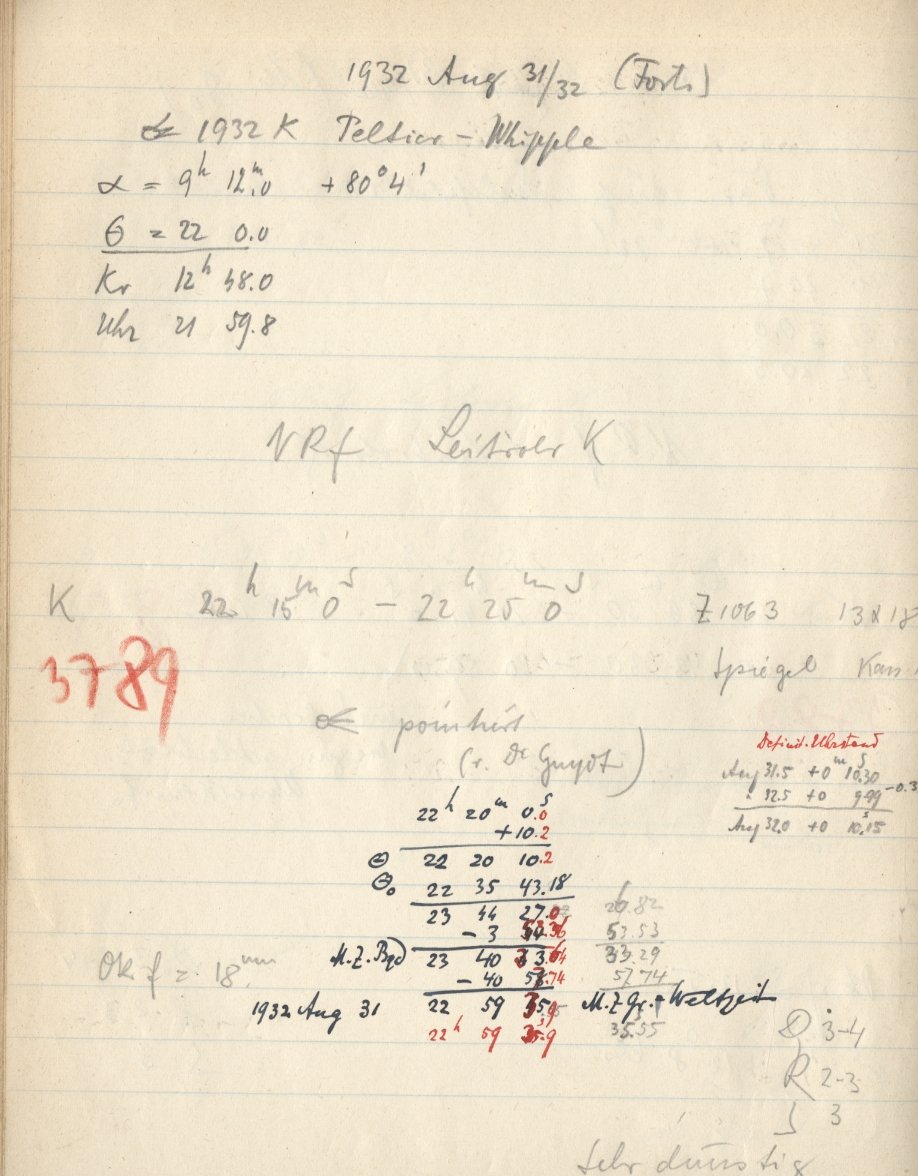 1932 Aug 31/32 (Forts)
☄ 1932 K Peltier-Whipple
α = 9h 12m.0 +80°4'
Θ = 22 0.0
Kr 12h 48.0
Uhr 21 59.8
VRf Leitrohr K
K 22h 15m 0s - 22h 25m 0s Z 1063 13x18
3789
Spiegel
☄ pointiert
(v. Dr Guyot)
Definit. Uhrstand
Aug 31.5 +0m 10s.30
" 32.5 +0 9.99 -0.3
Aug 32.0 +0 10s.15
22h 20m 0s.0
+10.2
Θ 22 20 10.2
Θ₀ 22 35 43.18
23 44 27.0 26.82
- 3 53.36 53.53
M.Z.Bgd 23 40 33.64 33.29
- 40 57.74 57 74
1932 Aug 31 22 59 35.9 M.Z.Gr. = Weltzeit
22h 59 35.9 35.55
Ok f = 18mm.
D 3-4
R 2-3
J 3
Sehr dunstig